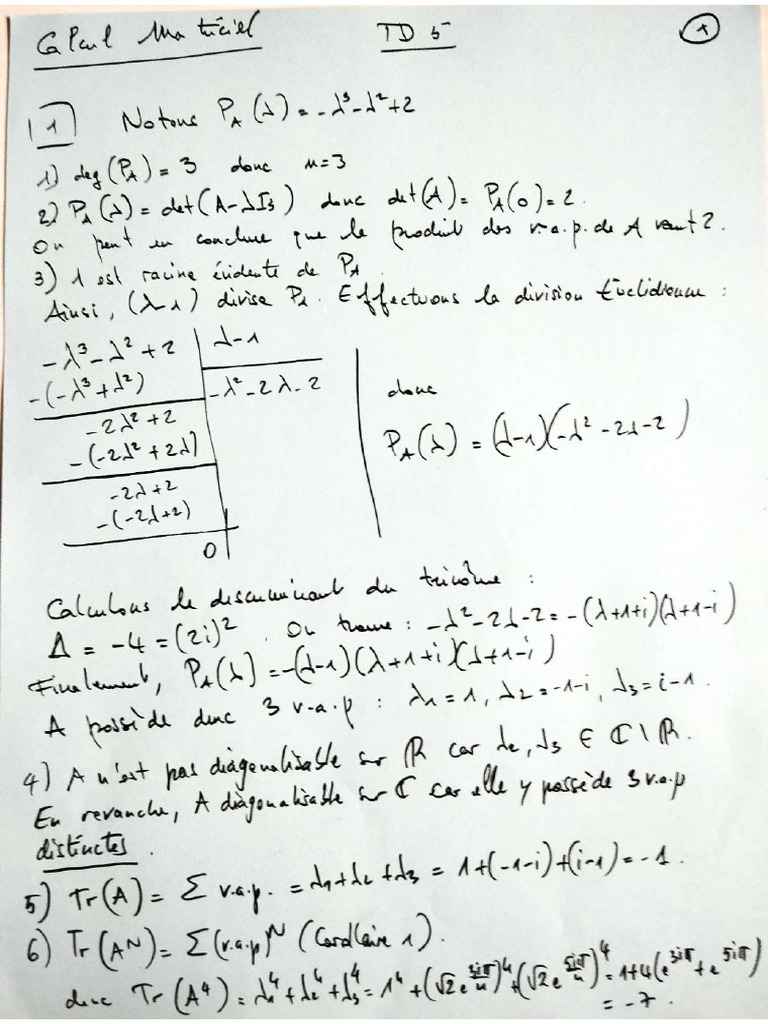 Calcul Matriciel TD 5 1
1 Notons P_A(λ) = -λ³-λ²+2
1) deg(P_A) = 3 donc n=3
2) P_A(λ) = det(A-λI₃) donc det(A) = P_A(0) = 2.
On peut en conclure que le produit des v.a.p. de A vaut 2.
3) 1 est racine évidente de P_A.
Ainsi, (λ-1) divise P_A. Effectuons la division Euclidienne :
-λ³-λ²+2 | λ-1
-(-λ³+λ²) | -λ²-2λ-2
-2λ²+2
-(-2λ²+2λ)
-2λ+2
-(-2λ+2)
0
donc
P_A(λ) = (λ-1)(-λ²-2λ-2)
Calculons le discriminant du trinôme :
Δ = -4 = (2i)². On trouve : -λ²-2λ-2 = -(λ+1+i)(λ+1-i)
Finalement, P_A(λ) = -(λ-1)(λ+1+i)(λ+1-i)
A possède donc 3 v-a-p : λ₁=1, λ₂=-1-i, λ₃=i-1.
4) A n'est pas diagonalisable sur ℝ car λ₂, λ₃ ∈ ℂ\ℝ.
En revanche, A diagonalisable sur ℂ car elle y possède 3 v.a.p
distinctes.
5) Tr(A) = Σ v.a.p. = λ₁+λ₂+λ₃ = 1+(-1-i)+(i-1) = -1.
6) Tr(A^N) = Σ(v.a.p)^N (Corollaire 1).
donc Tr(A⁴) = λ₁⁴+λ₂⁴+λ₃⁴ = 1⁴+(√2e^{3iπ/4})⁴+(√2e^{5iπ/4})⁴ = 1+4(e^{3iπ}+e^{5iπ})
= -7.